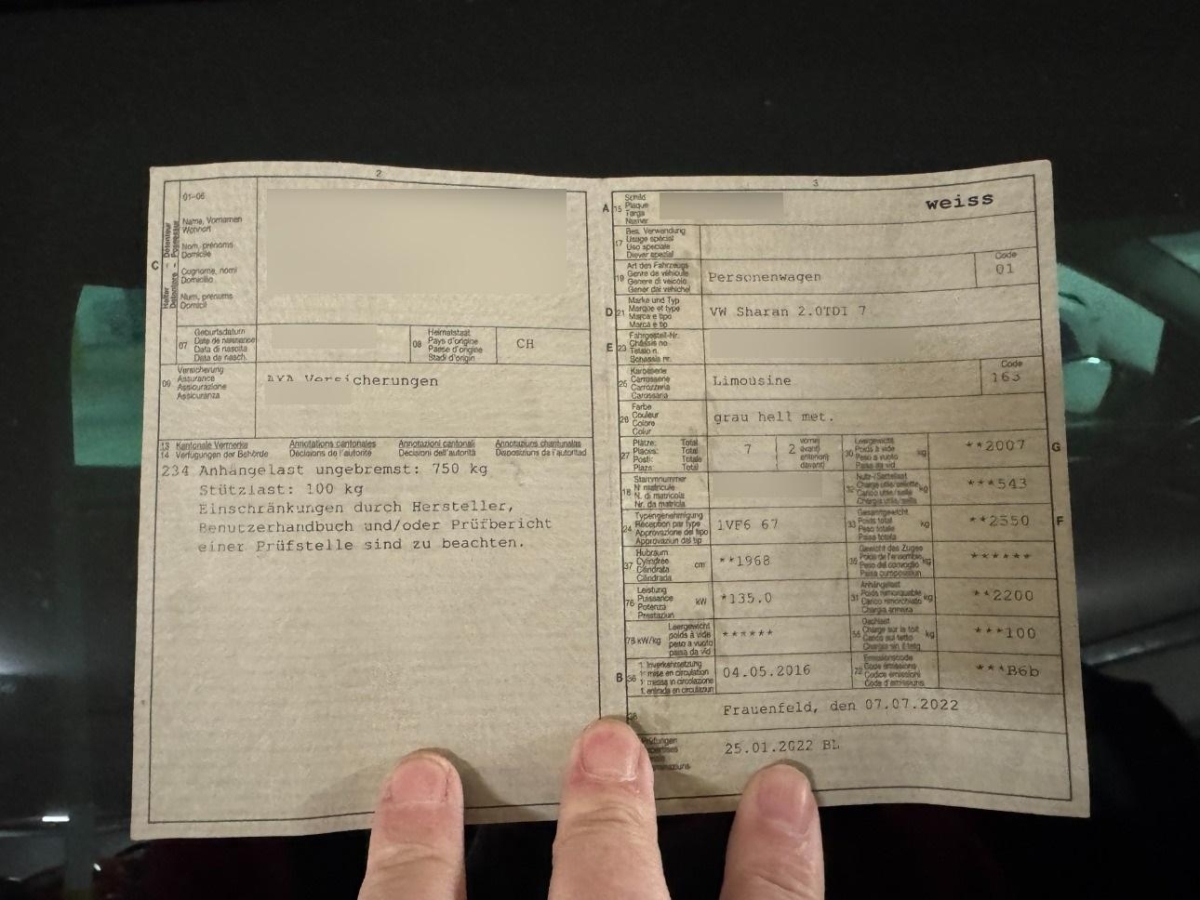 2
01-06
Name, Vornamen
Wohnort
Nom, prénoms
Domicile
Cugnome, nomi
Domicilio
Num, prenums
Domicil
C
07
Geburtsdatum
Date de naissance
Data di nascita
Data da nasch.
08
Heimatstaat
Pays d'origine
Paese d'origine
Stadi d'origin
CH
09
Versicherung
Assurance
Assicurazione
Assicuranza
AXA Versicherungen
13 Kantonale Vermerke Annotations cantonales Annotazioni cantonali Annotaziuns chantunalas
14 Verfügungen der Behörde Décisions de l'autorité Decisioni dell'autorità Disposiziuns da l'autoritad
234 Anhängelast ungebremst: 750 kg
Stützlast: 100 kg
Einschränkungen durch Hersteller,
Benutzerhandbuch und/oder Prüfbericht
einer Prüfstelle sind zu beachten.
3
A 15
Schild
Plaque
Targa
Numer
weiss
17
Bes. Verwendung
Usage spécial
Uso speciale
Diever spezial
19
Art des Fahrzeugs
Genre de véhicule
Genere di veicolo
Gener dal vehichel
Personenwagen
Code
01
D 21
Marke und Typ
Marque et type
Marca e tipo
Marca e tip
VW Sharan 2.0TDI 7
E 23
Fahrgestell-Nr.
Châssis no
Telaio n.
Schassis nr.
25
Karosserie
Carrosserie
Carrozzeria
Carossaria
Limousine
Code
163
26
Farbe
Couleur
Colore
Colur
grau hell met.
27
Plätze: Total
Places: Total
Posti: Totale
Plazs: Total
7
2
vorne
avant
anteriori
davant
30
Leergewicht
Poids à vide
Peso a vuoto
Paisa da vid
kg
**2007
G
18
Stammnummer
N° matricule
N. di matricola
Nr. da matricla
32
Nutz-/Sattellast
kg
***543
24
Typengenehmigung
Réception par type
Approvazione del tipo
Approvaziun dal tip
1VF6 67
33
Gesamtgewicht
Poids total
Peso totale
Paisa totala
kg
**2550
F
37
Hubraum
Cylindrée
Cilindrata
Cilindrada
cm
**1968
35
Gewicht des Zuges
Poids de l'ensemble
Peso del convoglio
Paisa cumposiziun
kg
******
76
Leistung
Puissance
Potenza
Prestaziun
kW
*135.0
31
Anhängelast
Poids remorquable
Carico rimorchiato
Chargia annexa
kg
**2200
78 kW/kg
Leergewicht
poids à vide
peso a vuoto
paisa da vid
******
55
Dachlast
Charge sur le toit
Carico sul tetto
Chargia sin il tetg
kg
***100
B 36
1. Inverkehrsetzung
1re mise en circulation
1. messa in circolazione
1. entrada en circulaziun
04.05.2016
72
Emissionscode
Code émissions
Codice emissioni
Code d'emissiuns
***B6b
Frauenfeld, den 07.07.2022
25.01.2022 BL